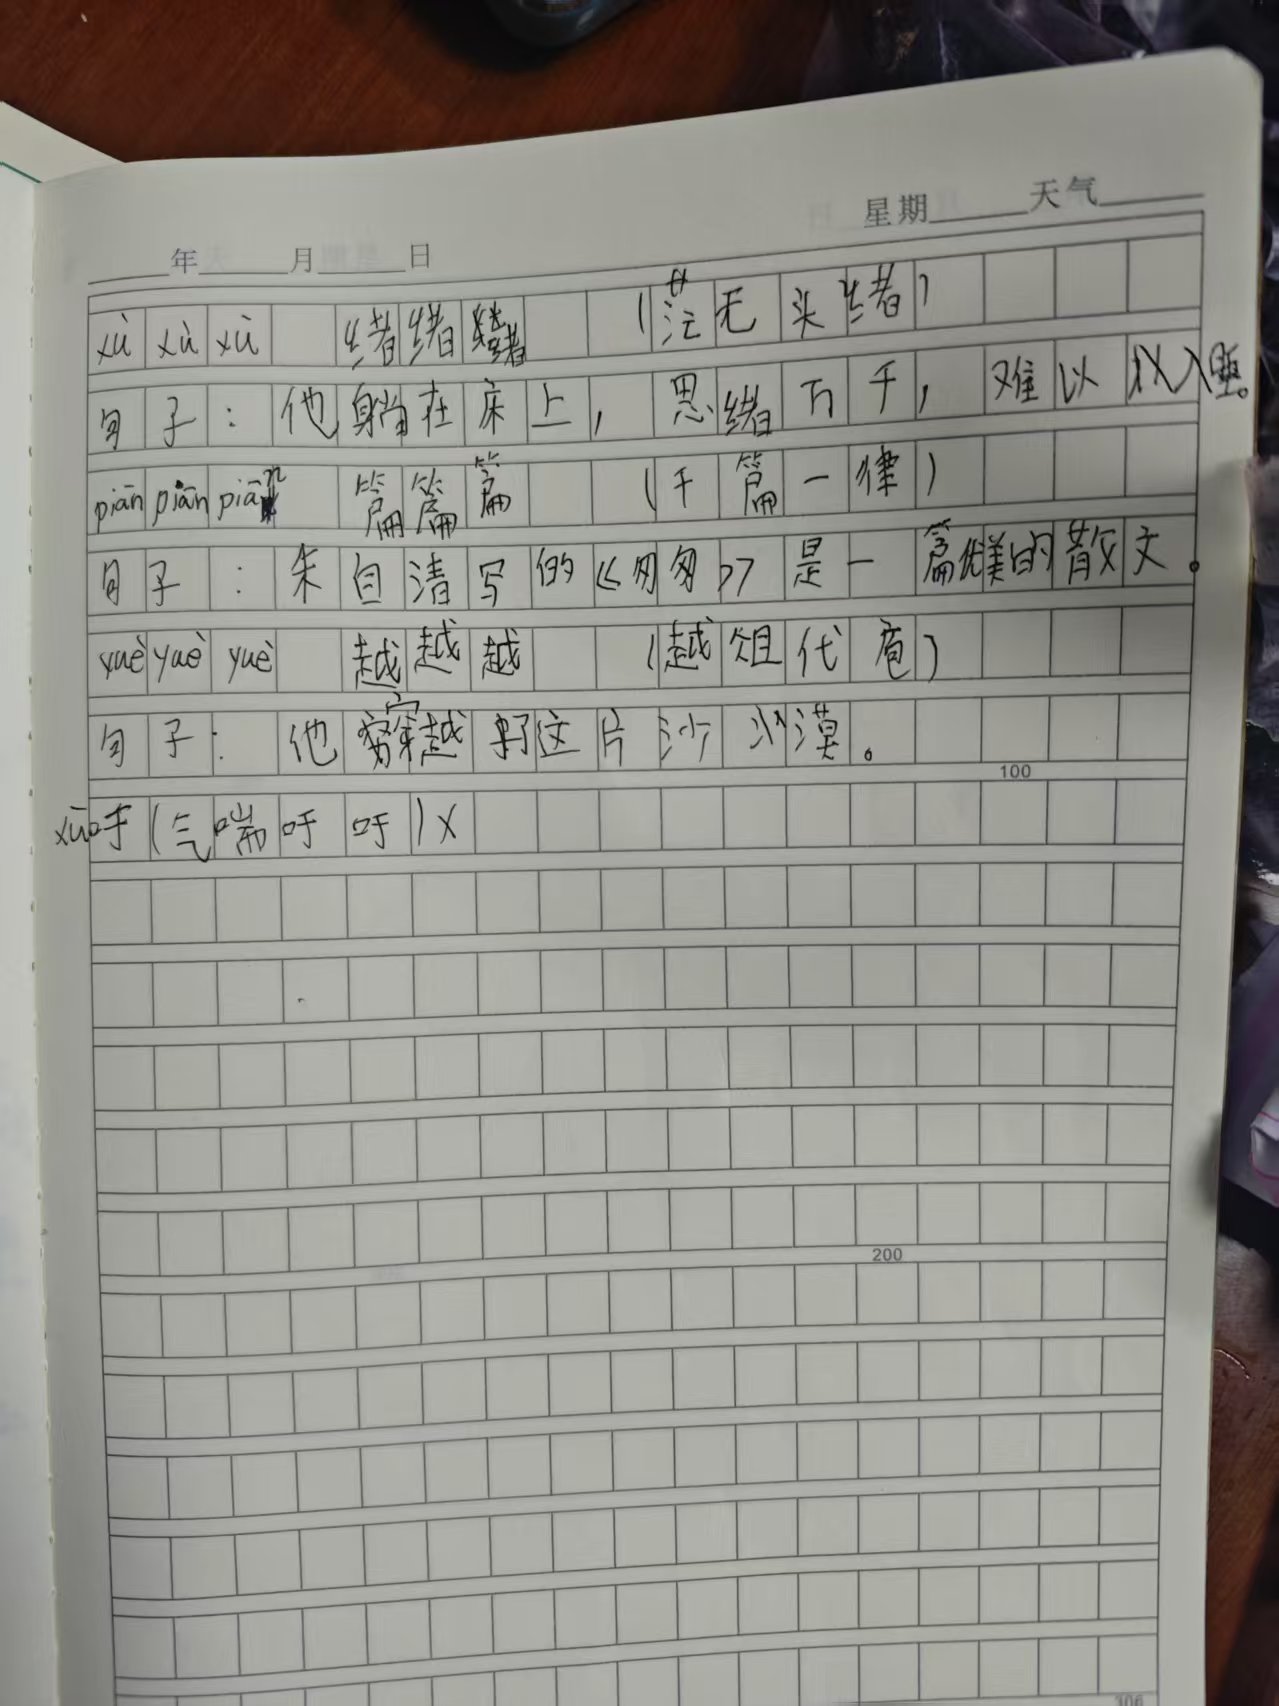 星期 天气
年 月 日
xù xù xù 绪绪绪 (茫无头绪)
句子：他躺在床上，思绪万千，难以入睡。
piān piān piān 篇篇篇 (千篇一律)
句子：朱自清写的《匆匆》是一篇优美的散文。
yuè yuè yuè 越越越 (越俎代庖)
句子：他穿越好这片沙漠。
xū吁(气喘吁吁)X
100
200
306